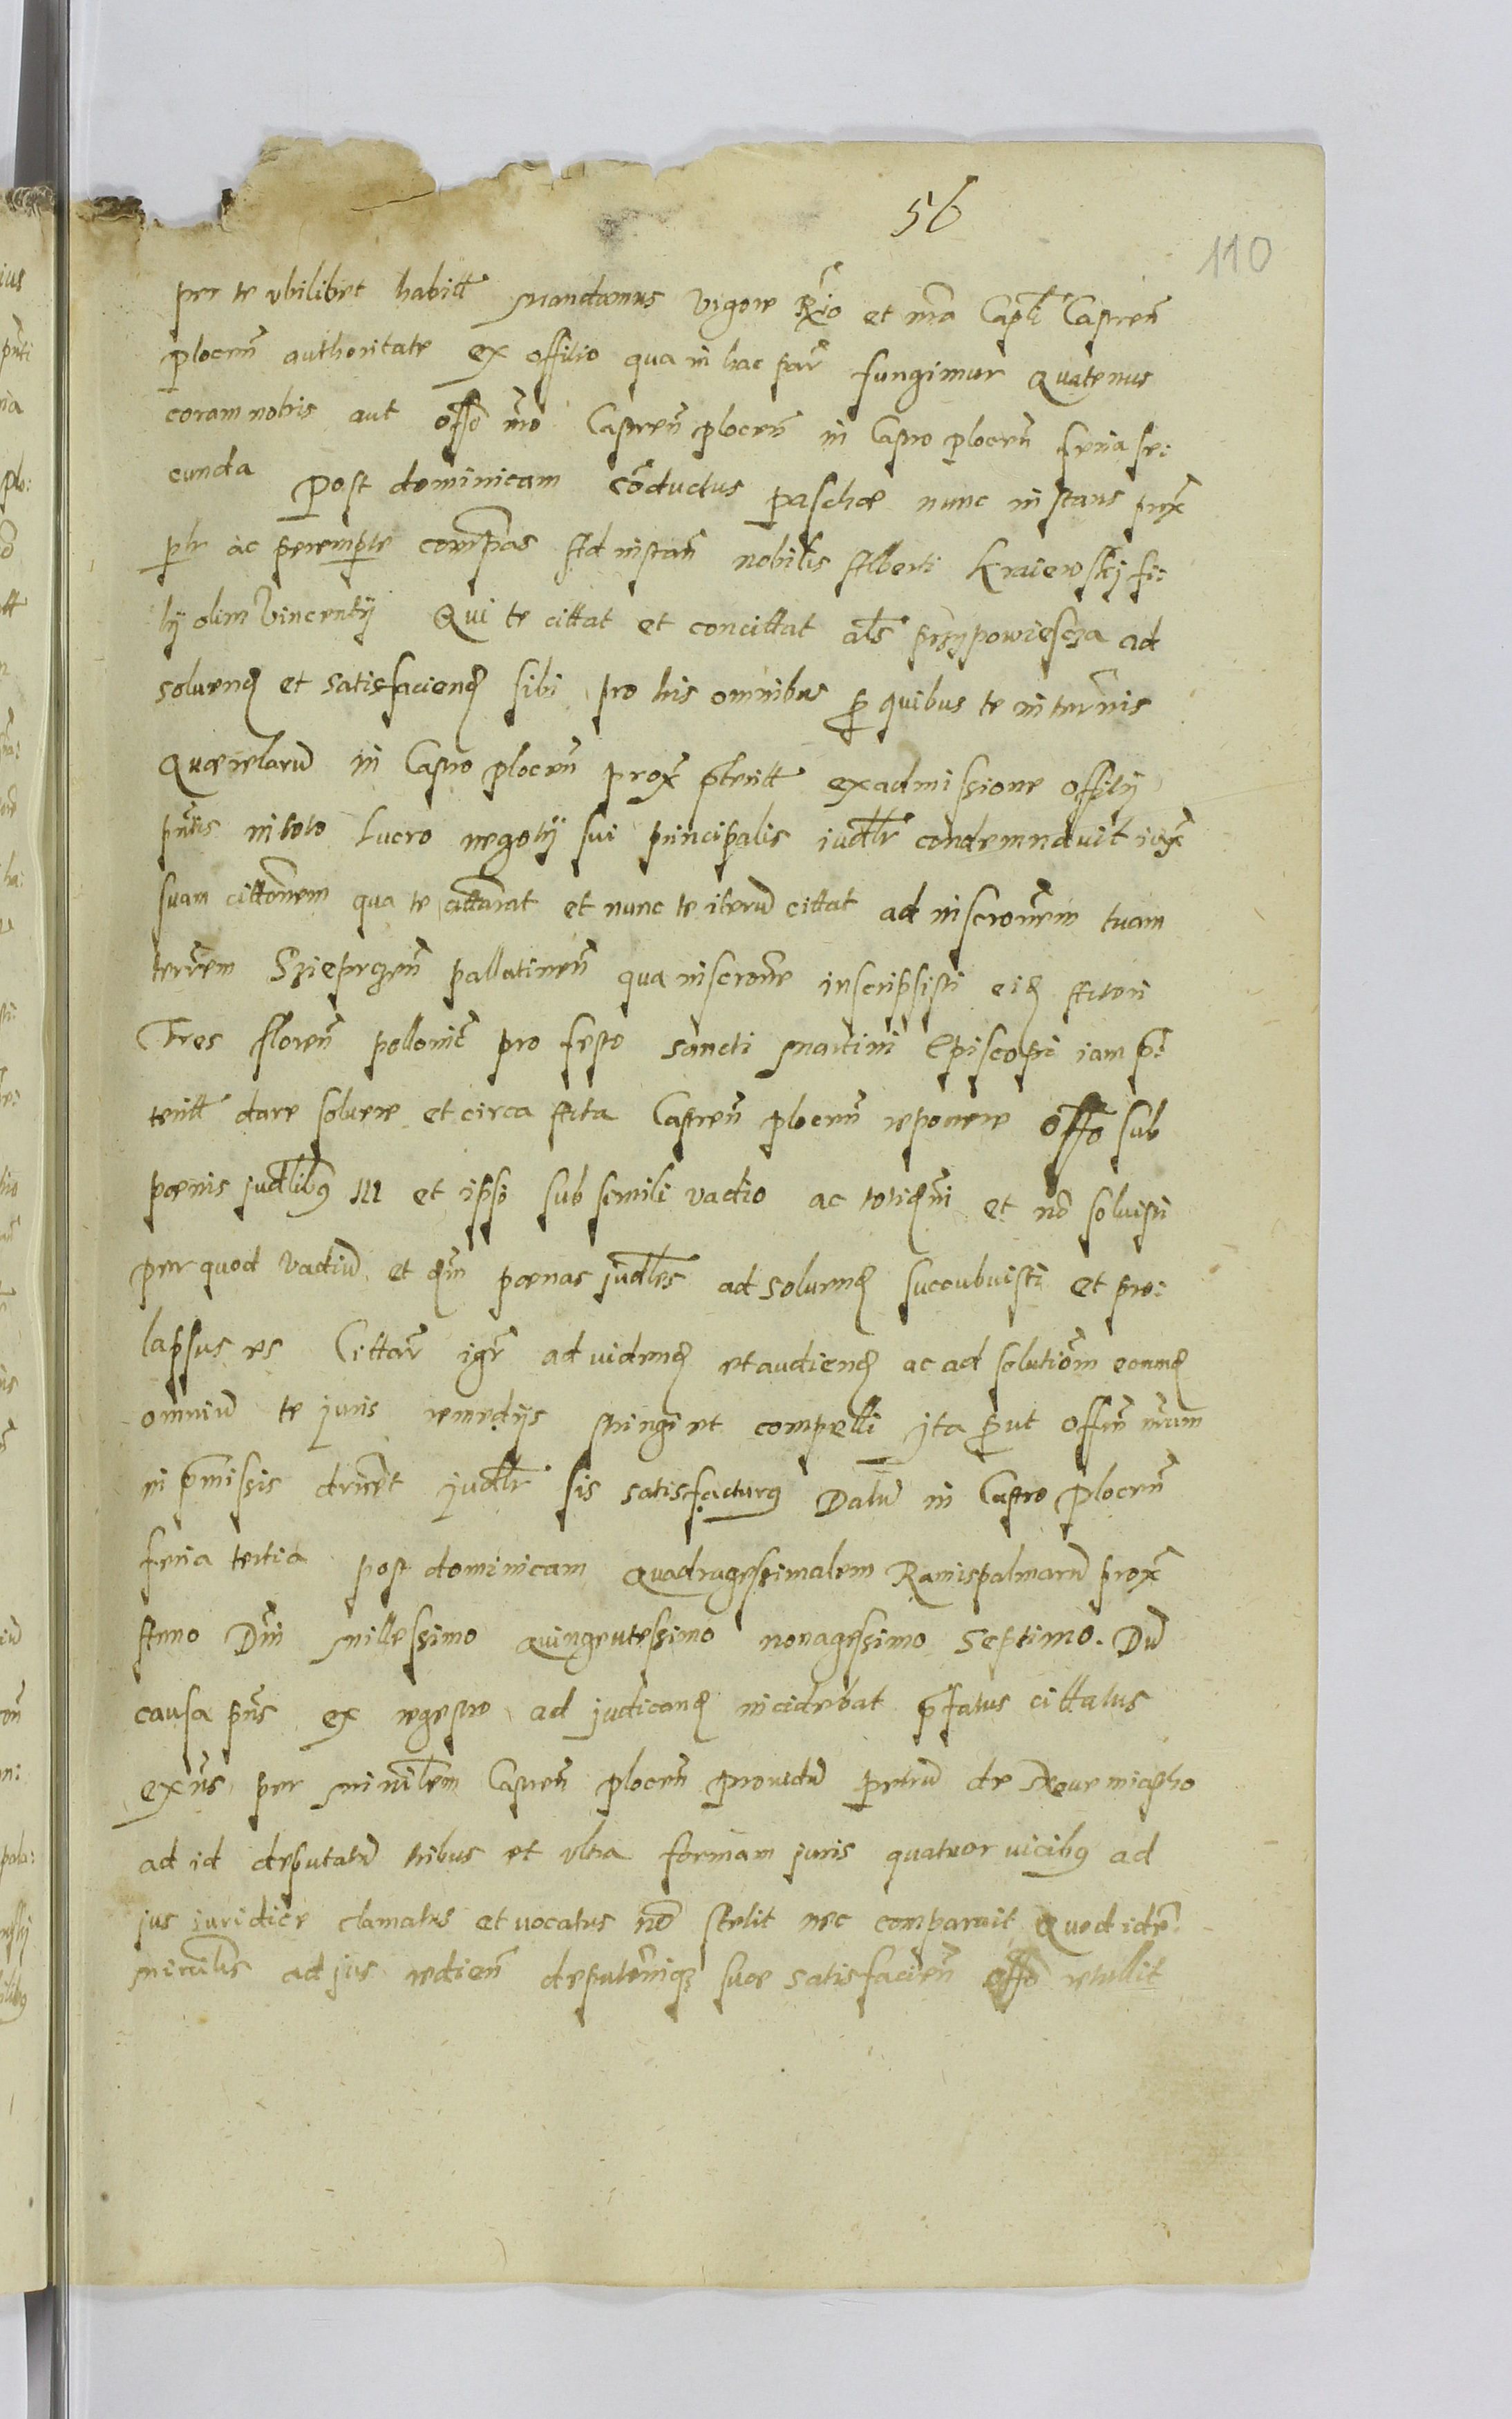 56
110
per te ubilibet habitt mandamus vigore Rgio et nra Capli Castren
plocen authoritate ex offitio qua in hac par fungimur quatenus
coram nobis aut offo nro Castren plocen in Castro plocen feria se:
cunda Post dominicam cõductus paschae nunc instans prx
plr ac perempte compas Ad instan nobilis Alberti Kraiewskij fi:
lij olim Vincentij Qui te cittat et concittat als przypowiescza ad
soluend et satisfaciend sibi pro his omnibus p quibus te in termis
Quaerelarũ in Castro plocen prox pteritt ex admissione offitij
pntis in toto Lucro negotij sui principalis iudlr condemnavit iux
suam cittonem qua te cittarat et nunc te iterũ cittat ad inscronem tuam
terrem Szieprczen pallatinen qua inscrone inscripsisti eid Actori
Tres floren pollonic pro festo sancti Martini Episcopi iam p:
teritt dare solvere et circa Acta Castren plocen reponere offo sub
poenis judlibus III et ipso sub simili vadio ac totidem et nõ solvisti
per quod vadiũ et dm poenas judles ad solvend succubuisti et pro:
lapsus es Cittar igr ad vidend et audiend ac ad solutiom eorumd
omniũ te juris remedijs stringi et compelli Ita put offm nrum
in pmissis decrevit judlr sis satisfacturus Datũ in Castro Plocen
feria tertia post dominicam quadragessimalem Ramispalmarũ prox
Anno Dni Millessimo quingentessimo nonagessimo Septimo. Dũ
causa pns ex regestro ad judicand incidebat pfatus cittatus
exns per Ministlem Castren plocen providũ petrum de
ad id deputatũ tribus et ultra formam juris quatuor vicibus ad
jus juridice clamatus et vocatus nõ stetit nec comparuit Quod idẽ
ministlis ad jus redien deputoniq suae satisfacien offo retullit